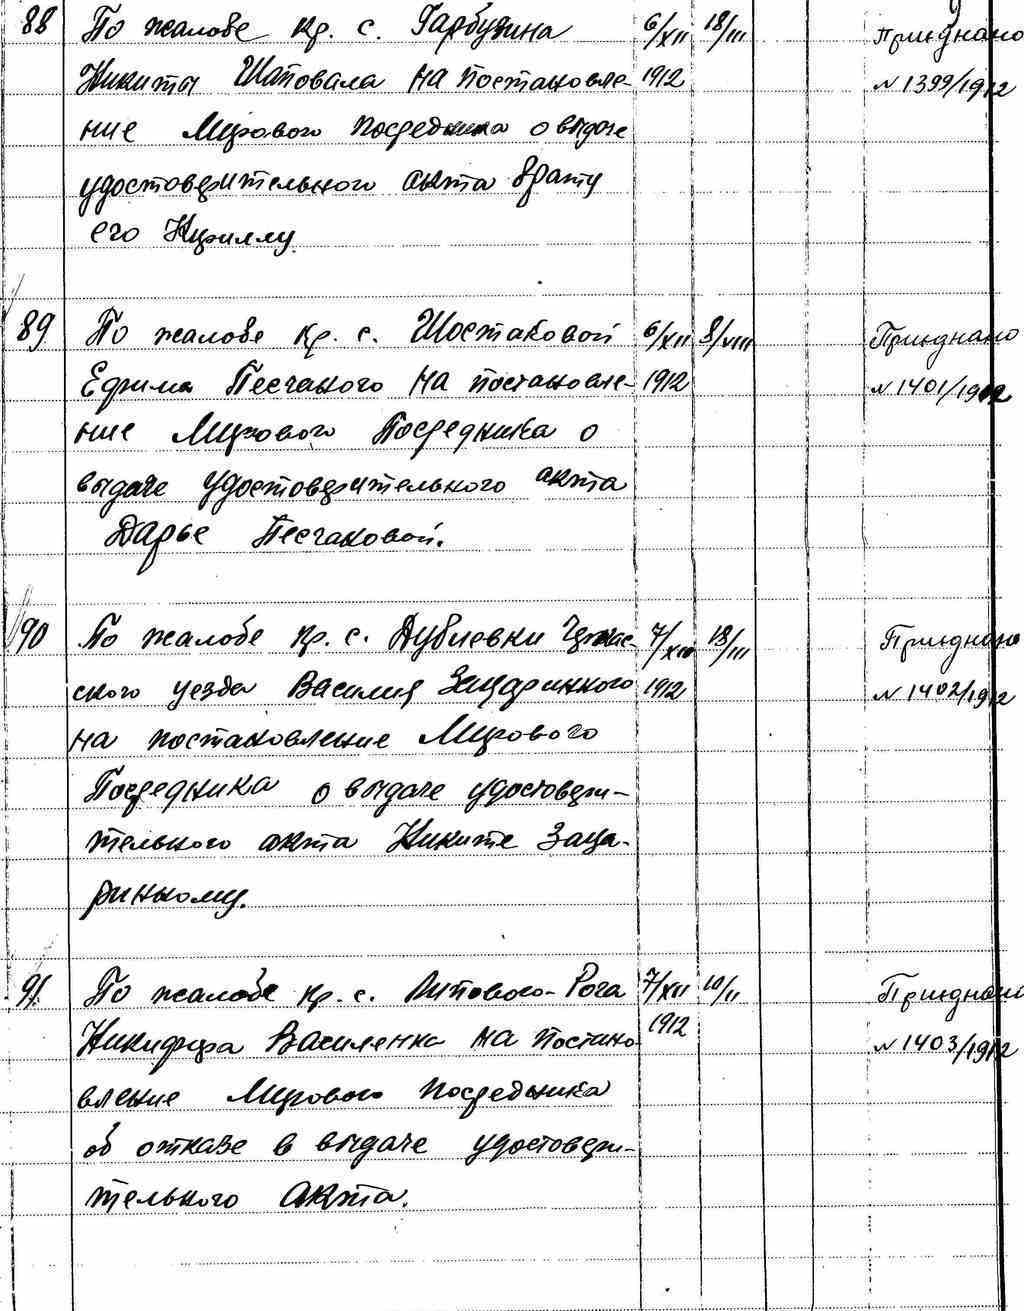 88 По жалобе кр. с. Гарбузина 6/XII 18/III Приєднано
Никиты Шаповала на постановле- 1912 № 1399/1912
ние Мирового посредника о выдаче
удостоверительного акта брату
его Кириллу.
89 По жалобе кр. с. Шостаковой 6/XII 8/VIII Приєднано
Ефима Песчаного на постановле- 1912 № 1401/1912
ние Мирового Посредника о
выдаче удостоверительного акта
Дарье Песчаковой.
90 По жалобе кр. с. Дубиевки 7/XII 18/III Приєднано
ского уезда Василия Зацаринного 1912 № 1402/1912
на постановление Мирового
Посредника о выдаче удостовери-
тельного акта Никите Заца-
ринному.
91. По жалобе кр. с. Липового-Рога 7/XII 10/II Приєднано
Никифора Василенка на постано- 1912 № 1403/1912
вление Мирового посредника
об отказе в выдаче удостовери-
тельного акта.